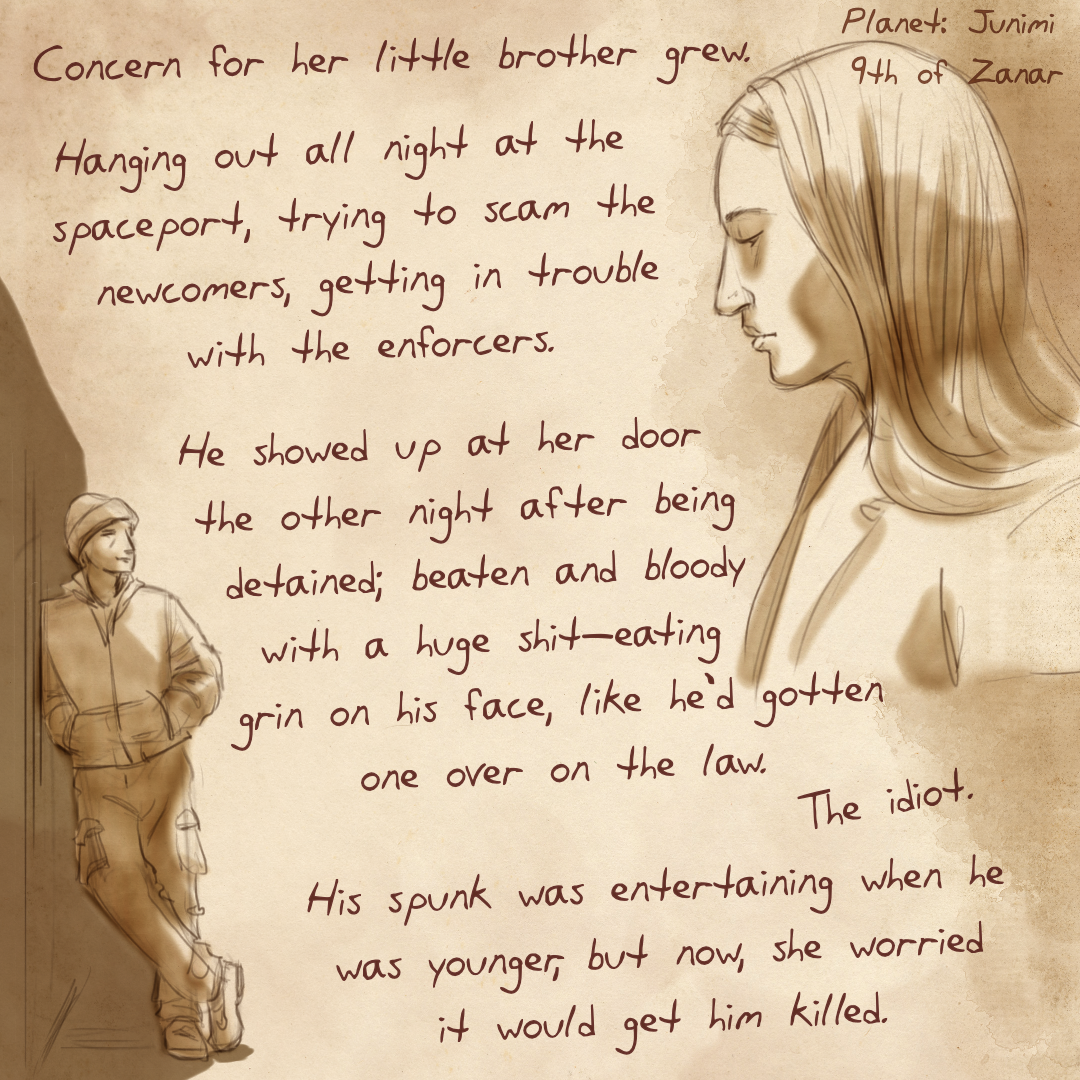 Planet: Junimi
9th of Zanar
Concern for her little brother grew.
Hanging out all night at the
spaceport, trying to scam the
newcomers, getting in trouble
with the enforcers.
He showed up at her door
the other night after being
detained; beaten and bloody
with a huge shit-eating
grin on his face, like he'd gotten
one over on the law.
The idiot.
His spunk was entertaining when he
was younger, but now, she worried
it would get him killed.